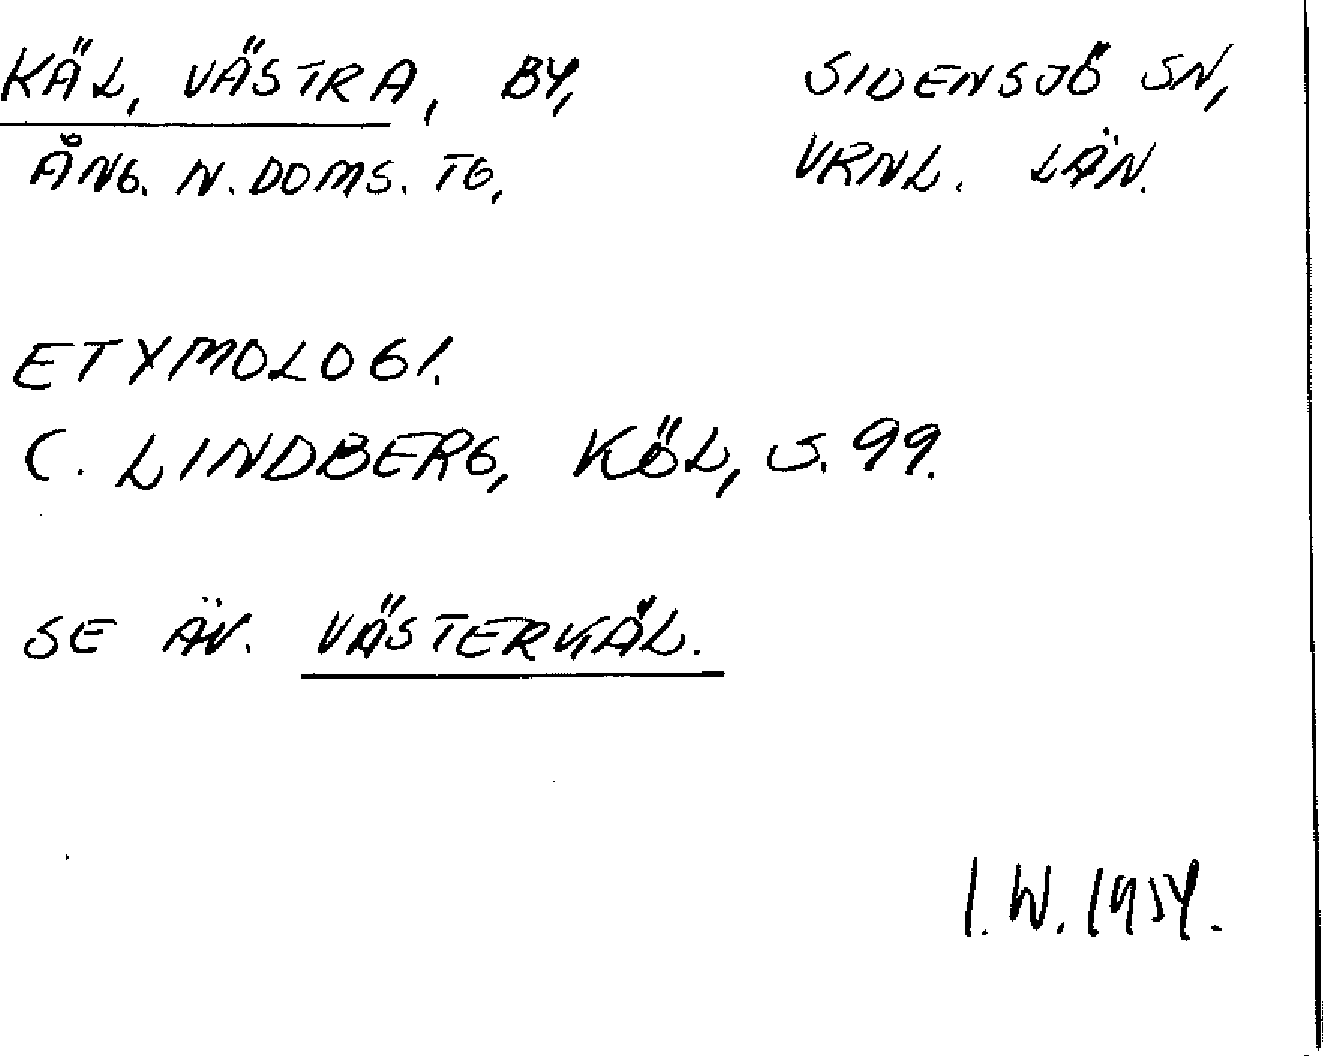 KÄL, VÄSTRA, BY, SIDENSJÖ SN,
ÅNG. N. DOMS. TG, VRNL. LÄN.
ETYMOLOGI.
C. LINDBERG, KÖL, S. 99.
SE ÄV. VÄSTERKÄL.
I. W. 1954.